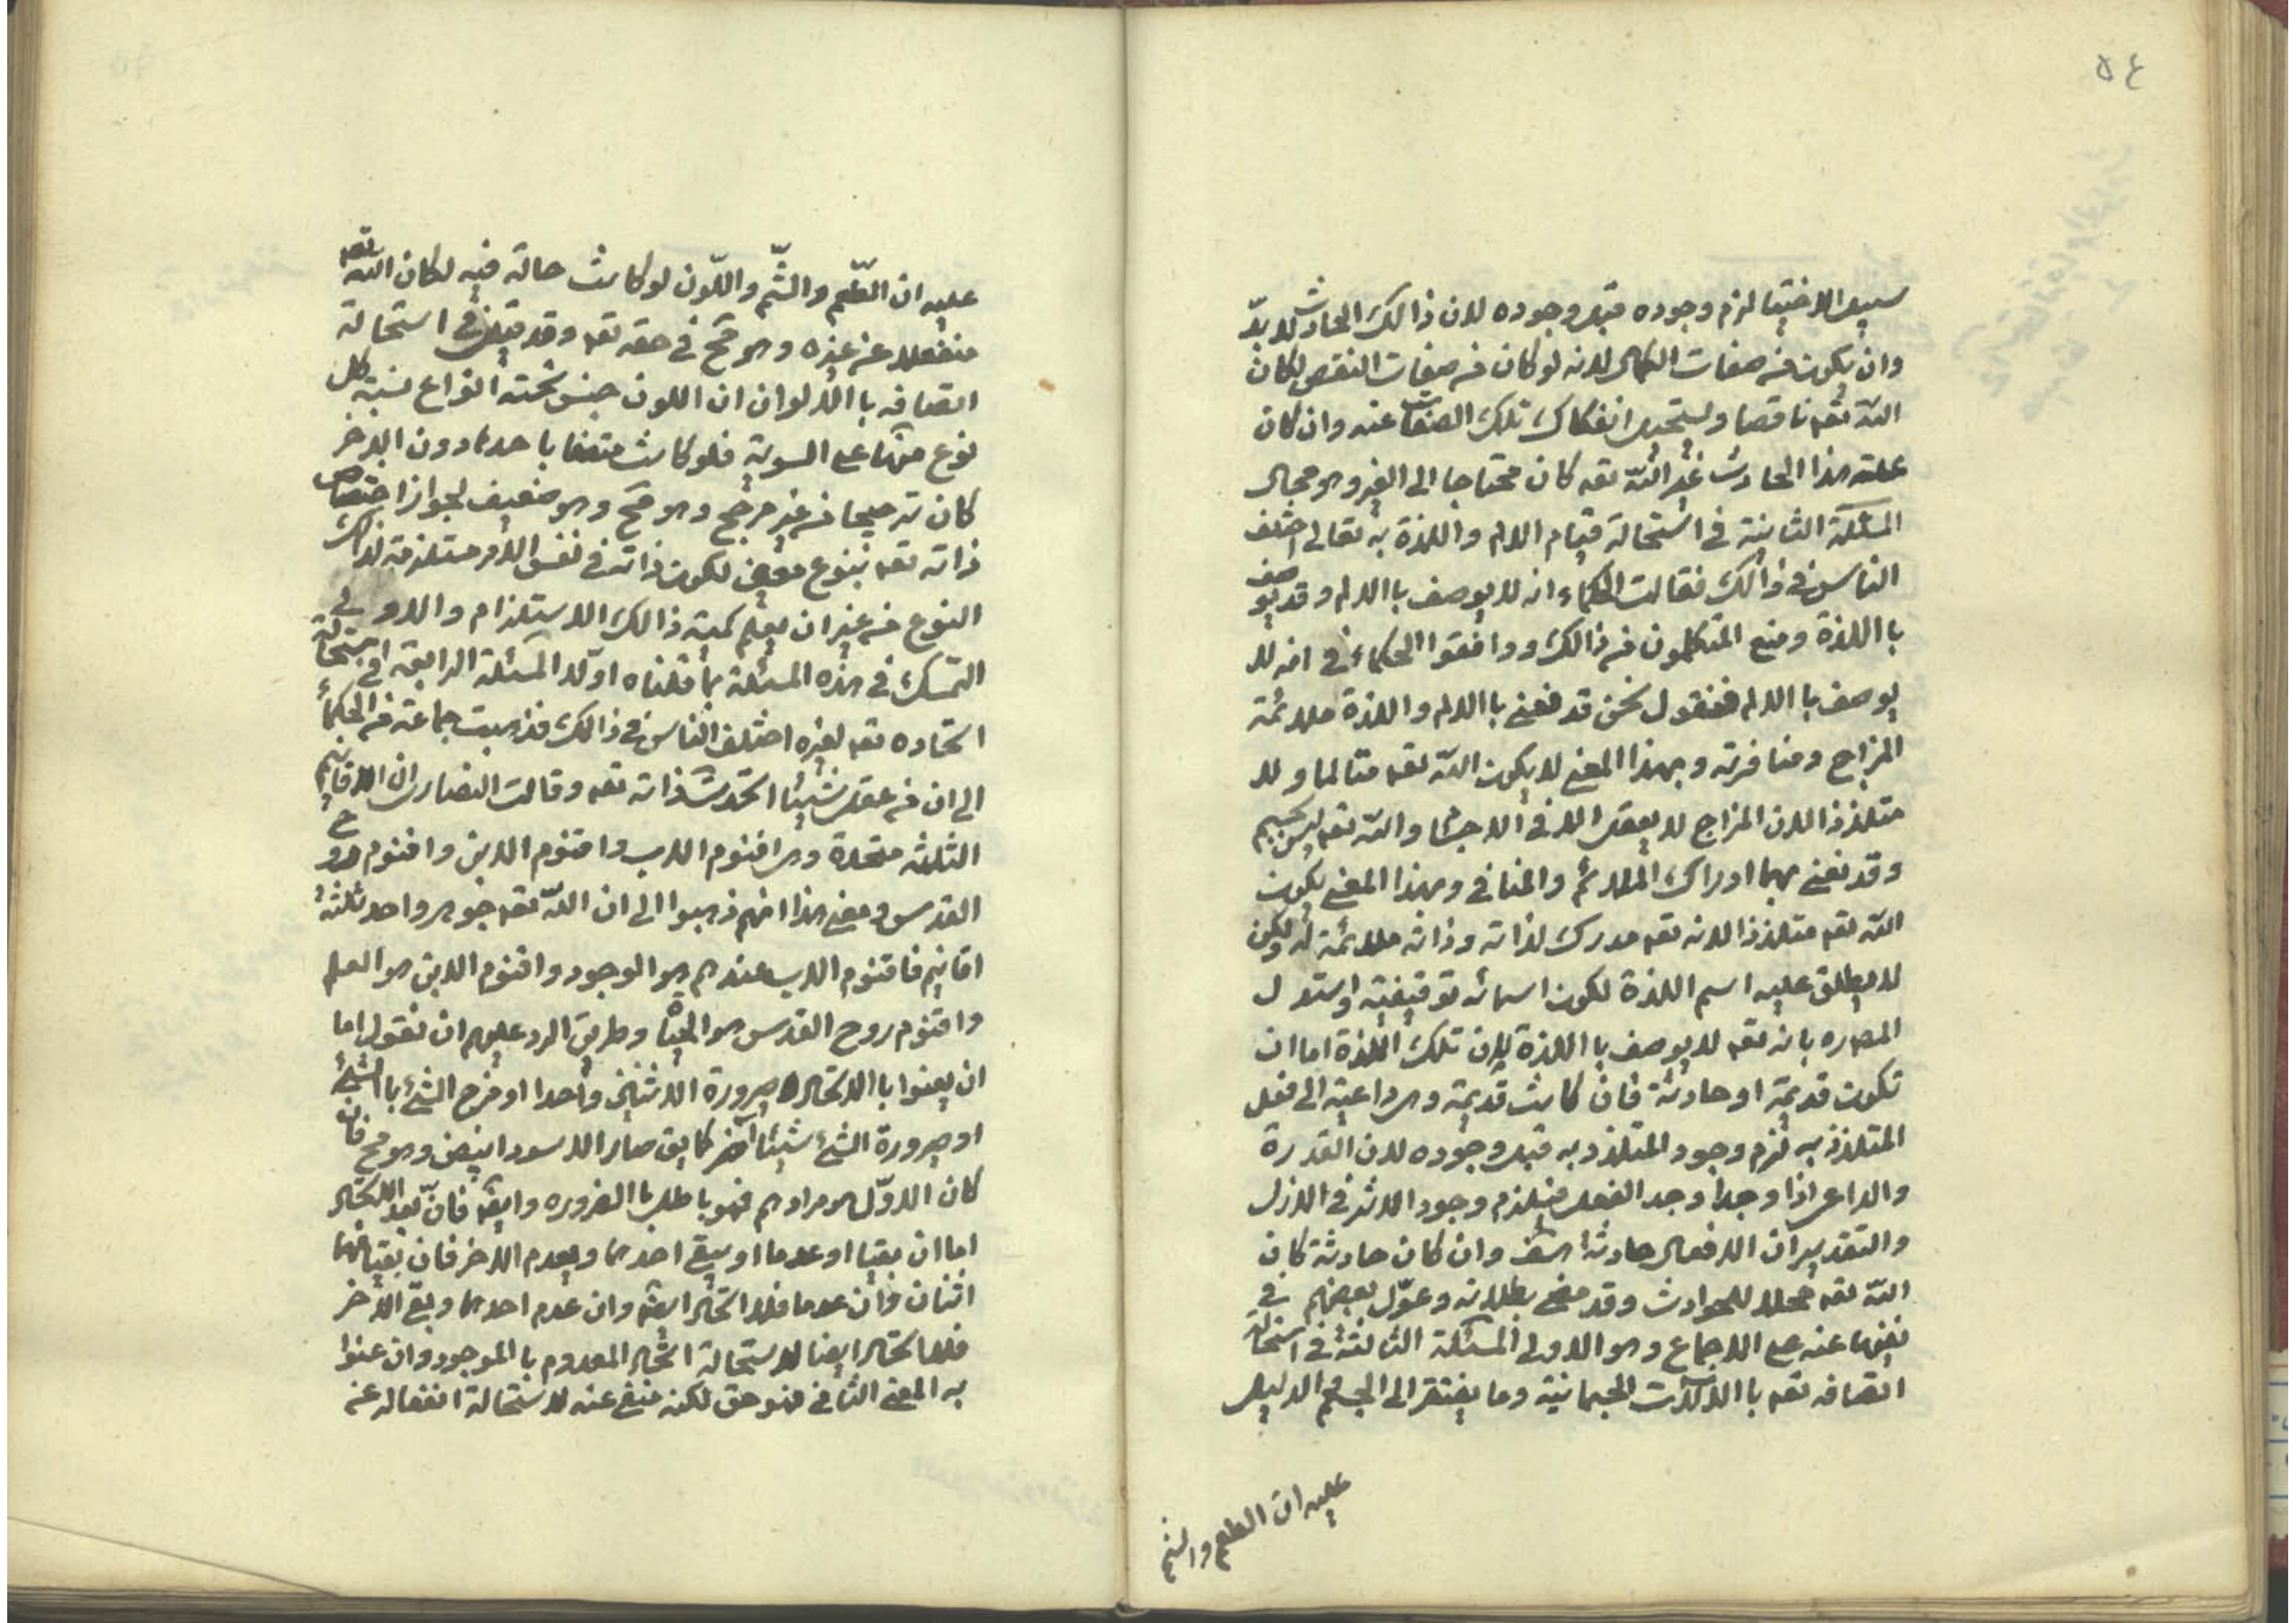 ٥٤
سبيل الاختيا لزم وجوده قبل وجوده لان ذالك الحادث لا بدّ
وان يكون من صفات الكمال لانه لو كان من صفات النقص لكان
الله تعه ناقصا ويستحيل انفكاك تلك الصفات عنه وان كان
علته هذا الحادث غير الله تعه كان محتاجا الى الغير وهو محال
المسئلة الثانية في استحالة قيام الالم واللذة به تعالى اختلف
الناس في ذالك فقالت الحكماء انه لا يوصف باالالم وقد يوصف
بااللذة ومنع المتكلمون من ذالك ووافقوا الحكماء في انه لا
يوصف باالالم فنقول نحن قد نعني باالالم واللذة ملائمة
المزاج ومنافرته وبهذا المعنى لا يكون الله تعه متالما ولا
متلذذا لان المزاج لا يعقل الا في الاجسا والله تعه ليس بجسم
وقد نعني بهما ادراك الملائم والمنافي وبهذا المعنى يكون
الله تعه متلذذا لانه تعه مدرك لذاته وذاته ملائمة له ولكن
لا يطلق عليه اسم اللذة لكون اسمائه توقيفية واستدل
المصره بانه تعه لا يوصف بااللذة لان تلك اللذة اما ان
تكون قديمة او حادثة فان كانت قديمة وهى داعية الى فعل
المتلذذ به لزم وجود المتلذذ به قبل وجوده لان القدرة
والداعى اذا وجدا وجد الفعل فيلزم وجود الاثر في الازل
والتقدير ان الافعال حادثة هف وان كان حادثة كان
الله تعه محلا للحوادث وقد مضى بطلانه وعوّل بعضهم في
نفيها عنه على الاجماع وهو الاولى المسئلة الثالثة في استحالة
اتصافه تعه باالالآت الجسمانية وما يفتقر الى الجسم الدليل
عليه ان الطعم والشم
عليه ان الطّعم والشّم واللّون لو كانت حالة فيه لكان الله تعه
منفعلا عن غيره وهو مح في حقه تعه وقد قيل في استحالة
اتصافه باالالوان ان اللون جنس تحته انواع نسبة كل
نوع منها على السوية فلو كانت متصفا باحدها دون الاخر
كان ترجيحا من غير مرجح وهو مح وهو ضعيف لجواز اختصاص
ذاته تعه بنوع معين لكون ذاته في نفس الامر مستلزمة لذالك
النوع من غير ان يعلم كمية ذالك الاستلزام والاولى
التمسك في هذه المسئلة بما قلناه اولا المسئلة الرابعة في استحالة
اتحاده تعه لغيره اختلف الناس في ذالك فذهبت جماعة من الحكماء
الى ان من عقل شيئا اتحدت ذاته تعه وقالت النصارى ان الاقانيم
الثلثه متحدة وهى اقنوم الاب واقنوم الابن واقنوم روح
القدس ومعنى هذا انهم ذهبوا الى ان الله تعه جوهر واحد ثلثة
اقانيم فاقنوم الاب عندهم هو الوجود واقنوم الابن هو العلم
واقنوم روح القدس هو الحياة وطريق الرد عليهم ان نقول اما
ان يعنوا باالاتحاد صيرورة الاثنين واحدا او مزج الشئ باالشئ
او صيرورة الشئ شيئا آخر كما يق صار الاسود ابيض وهو مح فان
كان الاوّل هو مرادهم فهو باطل باالضروره وايضه فان بعد الاتحاد
اما ان بقيا او عدما او يبقى احدهما ويعدم الاخر فان بقيا فهما
اثنان وان عدما فلا اتحاد ايضه وان عدم احدهما وبقى الاخر
فلا اتحاد ايضا لاستحالة اتحاد المعدوم باالموجود وان عنوا
به المعنى الثاني فهو حق لكنه منفى عنه لاستحالة انفعاله عن